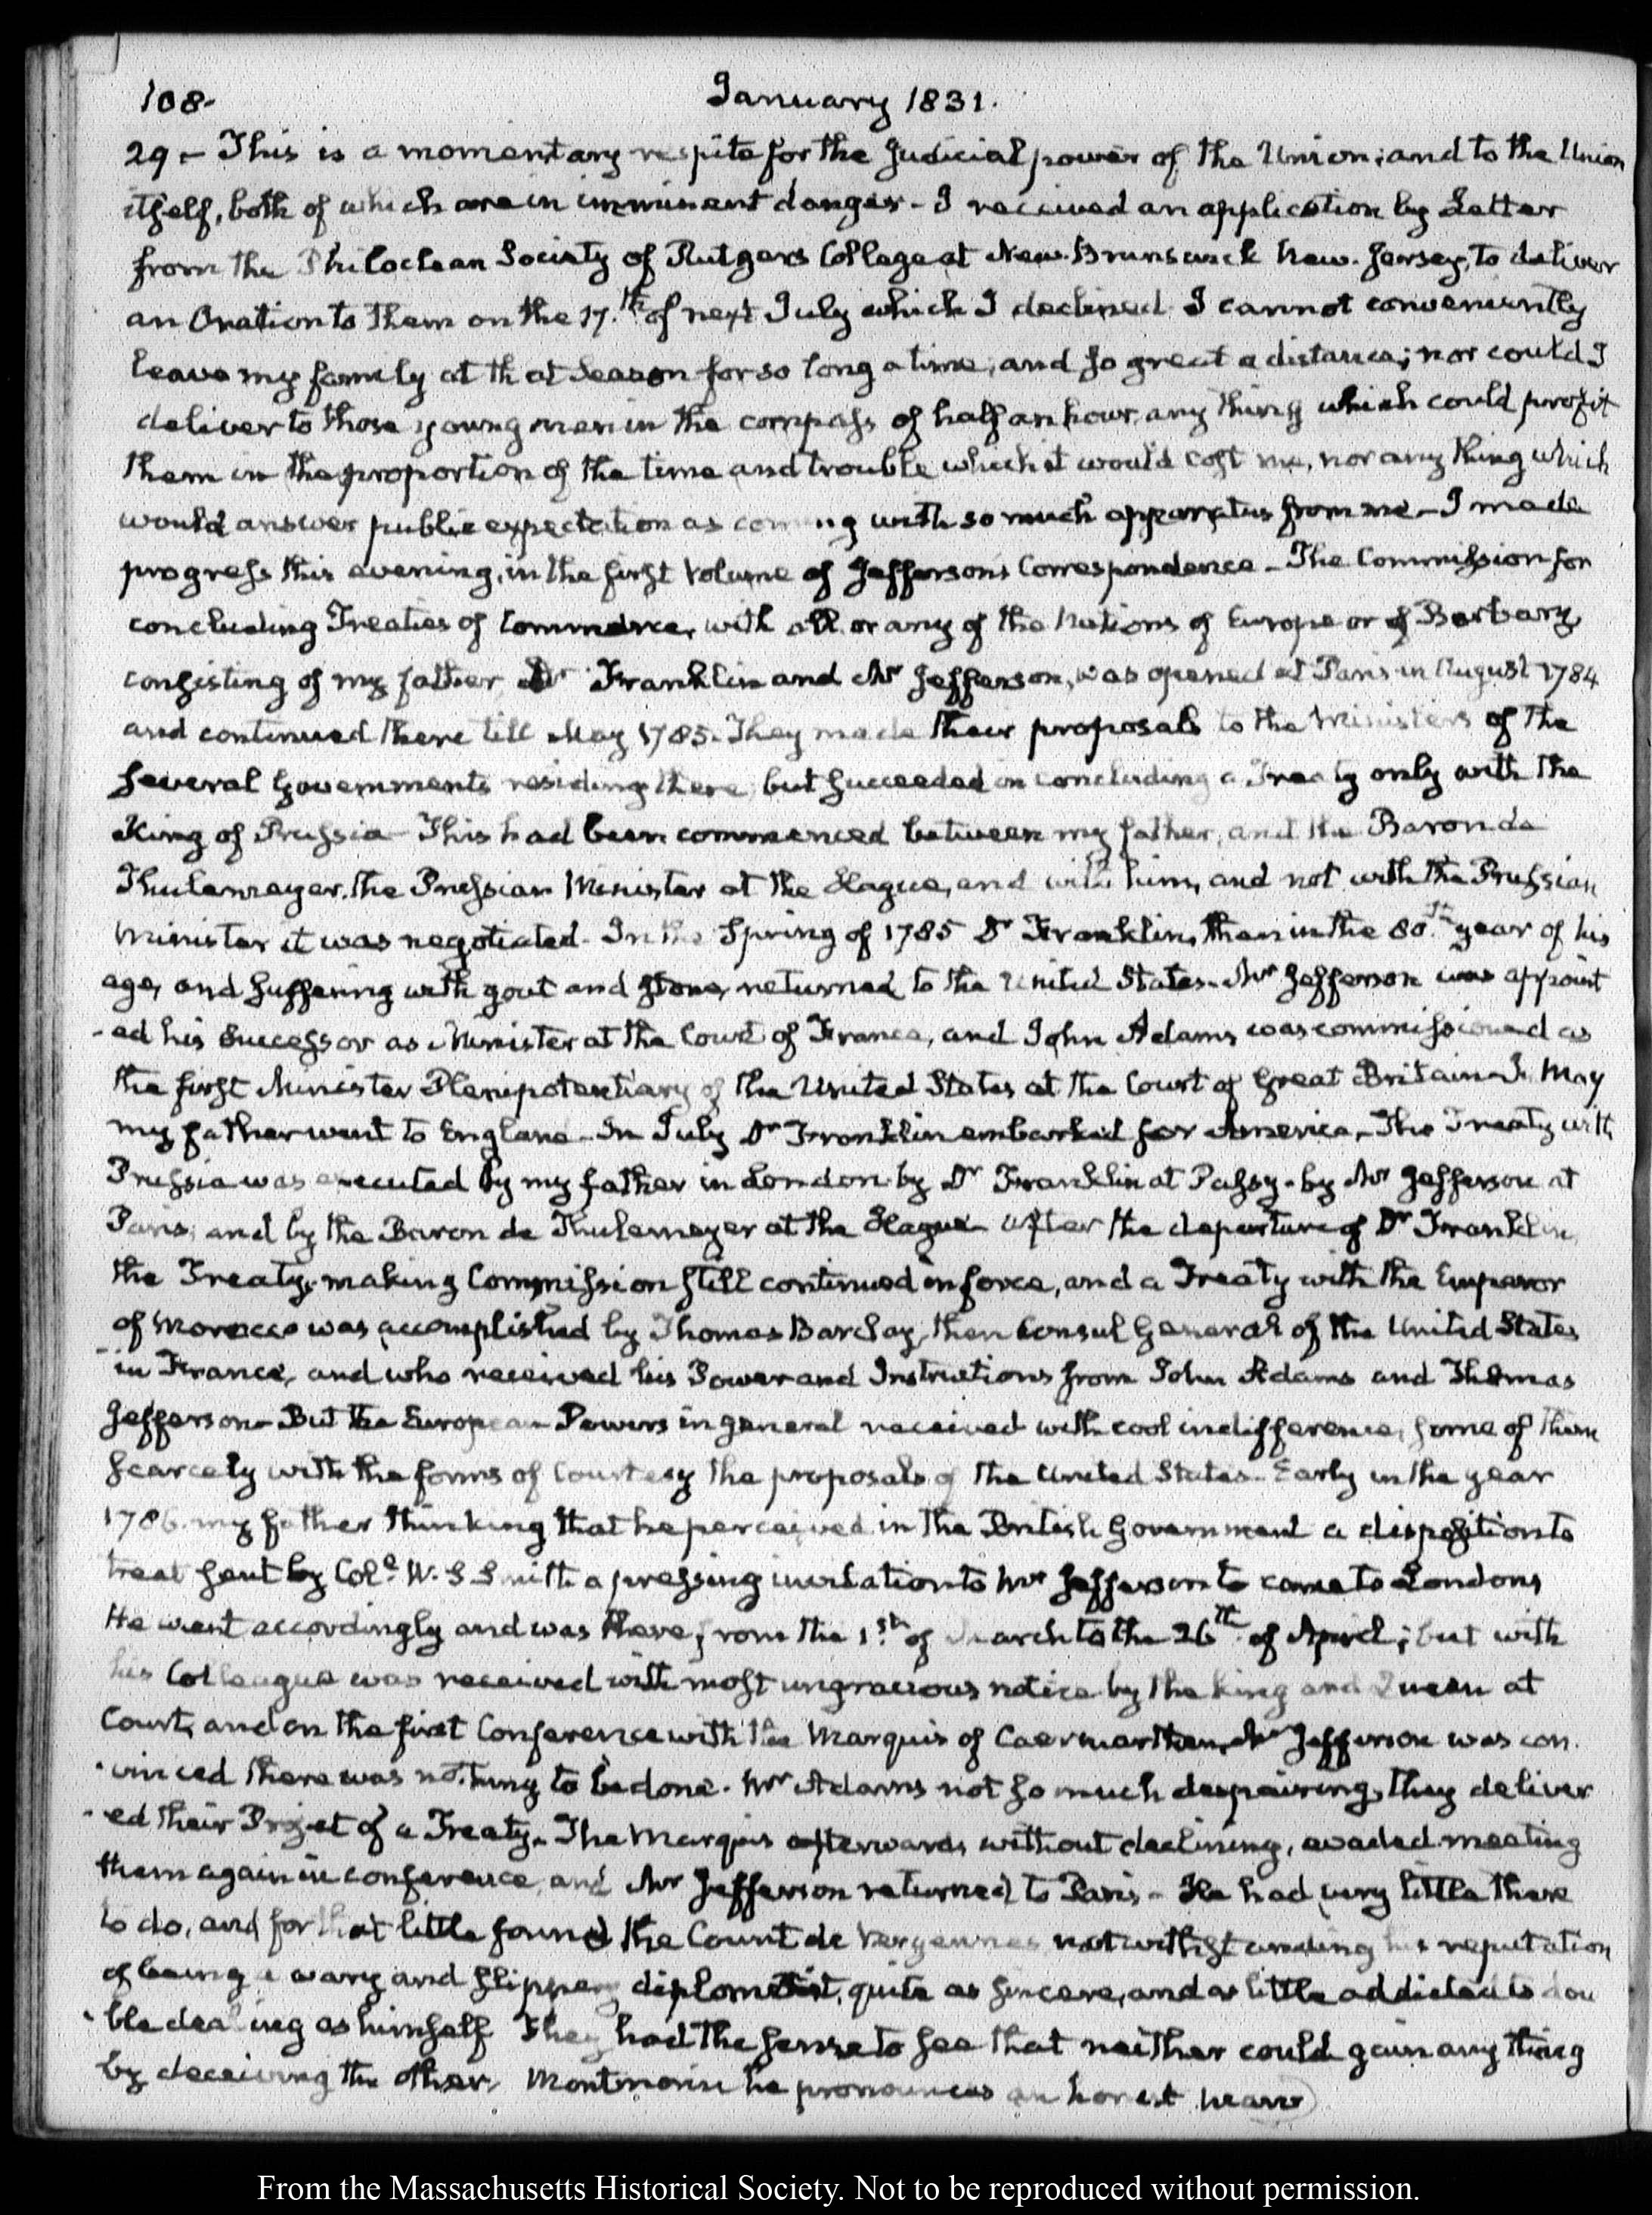 108-
January 1831.
29 - This is a momentary respite for the Judicial power of the Union; and to the Union
itself, both of which are in imminent danger - I received an application by Letter
from the Philoclean Society of Rutgers College at New-Brunswick New-Jersey, to deliver
an Oration to them on the 17.th of next July which I declined. I cannot conveniently
leave my family at that Season for so long a time, and so great a distance; nor could I
deliver to those young men in the compass of half an hour, any thing which could profit
them in the proportion of the time and trouble which it would cost me, nor any thing which
would answer public expectation as coming with so much apparatus from me - I made
progress this evening, in the first Volume of Jefferson's Correspondence - The Commission for
concluding Treaties of Commerce, with all, or any of the Nations of Europe or of Barbary,
consisting of my father, Dr Franklin and Mr Jefferson, was opened at Paris in August 1784
and continued there till May 1785. They made their proposals to the Ministers of the
several Governments residing there, but succeeded in concluding a Treaty only with the
King of Prussia - This had been commenced between my father, and the Baron de
Thulemeyer, the Prussian Minister at the Hague, and with him, and not with the Prussian
Minister it was negotiated - In the Spring of 1785 Dr Franklin, then in the 80.th year of his
age, and suffering with gout and stone, returned to the United States - Mr Jefferson was appoint
-ed his Successor as Minister at the Court of France, and John Adams, was commissioned as
the first Minister Plenipotentiary of the United States at the Court of Great Britain - In May
my father went to England - In July Dr Franklin embarked for America, - The Treaty with
Prussia was executed by my father in London - by Dr Franklin at Passy - by Mr Jefferson at
Paris; and by the Baron de Thulemeyer at the Hague - After the departure of Dr Franklin,
the Treaty-making Commission still continued in force, and a Treaty with the Emperor
of Morocco was accomplished by Thomas Barclay, then Consul General of the United States
in France, and who received his Power and Instructions from John Adams and Thomas
Jefferson - But the European Powers in general received with cool indifference, some of them
scarcely with the forms of Courtesy the proposals of the United States - Early in the year
1786. my father thinking that he perceived in the British Government a disposition to
treat sent by Col.l W. S Smith a pressing invitation to Mr Jefferson to come to London,
He went accordingly and was there, from the 1.st of March to the 26th of April; but with
his Colleague was received with most ungracious notice by the King and Queen at
Court, and on the first Conference with the Marquis of Caermarthen, Mr Jefferson was con-
-vinced there was nothing to be done. Mr Adams not so much despairing, they deliver
-ed their Projet of a Treaty - The Marquis afterwards without declining, evaded meeting
them again in conference, and Mr Jefferson returned to Paris - He had very little there
to do, and for that little found the Count de Vergennes notwithstanding his reputation
of being a wary and slippery diplomatist, quite as sincere, and as little addicted to dou
-ble dealing as himself. They had the sense to see that neither could gain any thing
by deceiving the other. Montmorin he pronounces an honest
From the Massachusetts Historical Society. Not to be reproduced without permission.